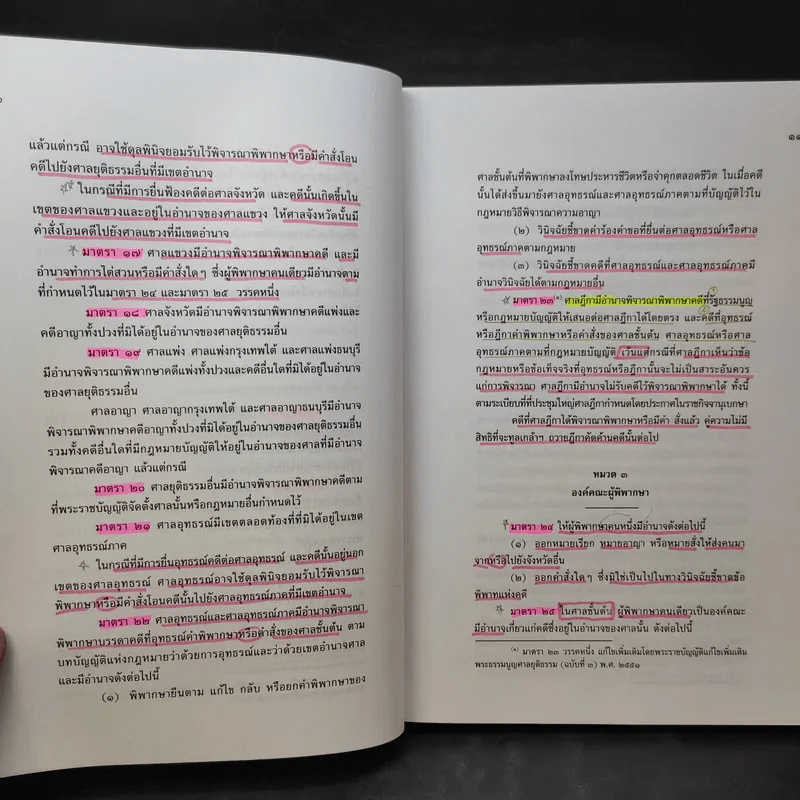 แล้วแต่กรณี อาจใช้ดุลพินิจยอมรับไว้พิจารณาพิพากษาหรือมีคำสั่งโอน
คดีไปยังศาลยุติธรรมอื่นที่มีเขตอำนาจ
ในกรณีที่มีการยื่นฟ้องคดีต่อศาลจังหวัด และคดีนั้นเกิดขึ้นใน
เขตของศาลแขวงและอยู่ในอำนาจของศาลแขวง ให้ศาลจังหวัดนั้นมี
คำสั่งโอนคดีไปยังศาลแขวงที่มีเขตอำนาจ
มาตรา ๑๗ ศาลแขวงมีอำนาจพิจารณาพิพากษาคดี และมี
อำนาจทำการไต่สวนหรือมีคำสั่งใดๆ ซึ่งผู้พิพากษาคนเดียวมีอำนาจตาม
ที่กำหนดไว้ในมาตรา ๒๔ และมาตรา ๒๕ วรรคหนึ่ง
มาตรา ๑๘ ศาลจังหวัดมีอำนาจพิจารณาพิพากษาคดีแพ่งและ
คดีอาญาทั้งปวงที่มิได้อยู่ในอำนาจของศาลยุติธรรมอื่น
มาตรา ๑๙ ศาลแพ่ง ศาลแพ่งกรุงเทพใต้ และศาลแพ่งธนบุรี
มีอำนาจพิจารณาพิพากษาคดีแพ่งทั้งปวงและคดีอื่นใดที่มิได้อยู่ในอำนาจ
ของศาลยุติธรรมอื่น
ศาลอาญา ศาลอาญากรุงเทพใต้ และศาลอาญาธนบุรีมีอำนาจ
พิจารณาพิพากษาคดีอาญาทั้งปวงที่มิได้อยู่ในอำนาจของศาลยุติธรรมอื่น
รวมทั้งคดีอื่นใดที่มีกฎหมายบัญญัติให้อยู่ในอำนาจของศาลที่มีอำนาจ
พิจารณาคดีอาญา แล้วแต่กรณี
มาตรา ๒๐ ศาลยุติธรรมอื่นมีอำนาจพิจารณาพิพากษาคดีตาม
ที่พระราชบัญญัติจัดตั้งศาลนั้นหรือกฎหมายอื่นกำหนดไว้
มาตรา ๒๑ ศาลอุทธรณ์มีเขตตลอดท้องที่ที่มิได้อยู่ในเขต
ศาลอุทธรณ์ภาค
ในกรณีที่มีการยื่นอุทธรณ์คดีต่อศาลอุทธรณ์ และคดีนั้นอยู่นอก
เขตของศาลอุทธรณ์ ศาลอุทธรณ์อาจใช้ดุลพินิจยอมรับไว้พิจารณา
พิพากษาหรือมีคำสั่งโอนคดีนั้นไปยังศาลอุทธรณ์ภาคที่มีเขตอำนาจ
มาตรา ๒๒ ศาลอุทธรณ์และศาลอุทธรณ์ภาคมีอำนาจพิจารณา
พิพากษาบรรดาคดีที่อุทธรณ์คำพิพากษาหรือคำสั่งของศาลชั้นต้น ตาม
บทบัญญัติแห่งกฎหมายว่าด้วยการอุทธรณ์และว่าด้วยเขตอำนาจศาล
และมีอำนาจดังต่อไปนี้
(๑) พิพากษายืนตาม แก้ไข กลับ หรือยกคำพิพากษาของ
ศาลชั้นต้นที่พิพากษาลงโทษประหารชีวิตหรือจำคุกตลอดชีวิต ในเมื่อคดี
นั้นได้ส่งขึ้นมายังศาลอุทธรณ์และศาลอุทธรณ์ภาคตามที่บัญญัติไว้ใน
กฎหมายวิธีพิจารณาความอาญา
(๒) วินิจฉัยชี้ขาดคำร้องคำขอที่ยื่นต่อศาลอุทธรณ์หรือศาล
อุทธรณ์ภาคตามกฎหมาย
(๓) วินิจฉัยชี้ขาดคดีที่ศาลอุทธรณ์และศาลอุทธรณ์ภาคมี
อำนาจวินิจฉัยได้ตามกฎหมายอื่น
มาตรา ๒๓(๑) ศาลฎีกามีอำนาจพิจารณาพิพากษาคดีที่รัฐธรรมนูญ
หรือกฎหมายบัญญัติให้เสนอต่อศาลฎีกาได้โดยตรง และคดีที่อุทธรณ์
หรือฎีกาคำพิพากษาหรือคำสั่งของศาลชั้นต้น ศาลอุทธรณ์หรือศาล
อุทธรณ์ภาคตามที่กฎหมายบัญญัติ เว้นแต่กรณีที่ศาลฎีกาเห็นว่าข้อ
กฎหมายหรือข้อเท็จจริงที่อุทธรณ์หรือฎีกานั้นจะไม่เป็นสาระอันควร
แก่การพิจารณา ศาลฎีกามีอำนาจไม่รับคดีไว้พิจารณาพิพากษาได้ ทั้งนี้
ตามระเบียบที่ที่ประชุมใหญ่ศาลฎีกากำหนดโดยประกาศในราชกิจจานุเบกษา
คดีที่ศาลฎีกาได้พิจารณาพิพากษาหรือมีคำ สั่งแล้ว คู่ความไม่มี
สิทธิที่จะทูลเกล้าฯ ถวายฎีกาคัดค้านคดีนั้นต่อไป
หมวด ๓
องค์คณะผู้พิพากษา
มาตรา ๒๔ ให้ผู้พิพากษาคนหนึ่งมีอำนาจดังต่อไปนี้
(๑) ออกหมายเรียก หมายอาญา หรือหมายสั่งให้ส่งคนมา
จากหรือไปยังจังหวัดอื่น
(๒) ออกคำสั่งใดๆ ซึ่งมิใช่เป็นไปในทางวินิจฉัยชี้ขาดข้อ
พิพาทแห่งคดี
มาตรา ๒๕ ในศาลชั้นต้น ผู้พิพากษาคนเดียวเป็นองค์คณะ
มีอำนาจเกี่ยวแก่คดีซึ่งอยู่ในอำนาจของศาลนั้น ดังต่อไปนี้
(๑) มาตรา ๒๓ วรรคหนึ่ง แก้ไขเพิ่มเติมโดยพระราชบัญญัติแก้ไขเพิ่มเติม
พระธรรมนูญศาลยุติธรรม (ฉบับที่ ๓) พ.ศ. ๒๕๕๑